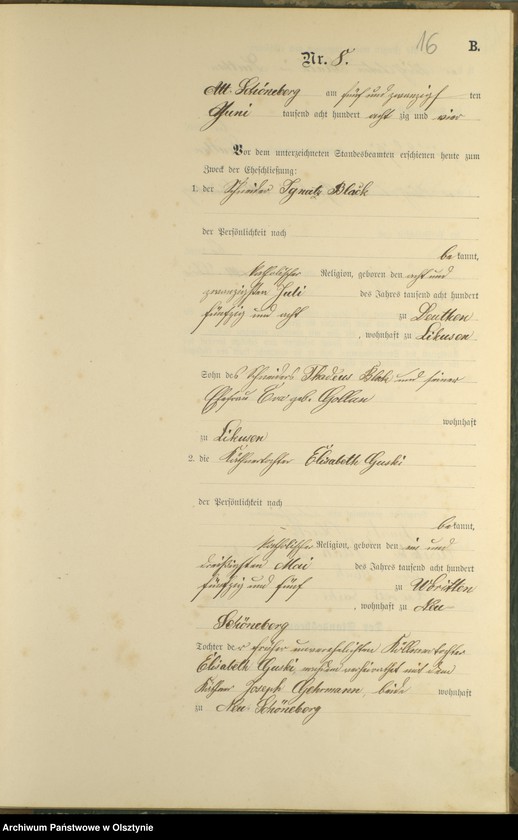 16
B.
Nr. 8.
Alt-Schöneberg am fünf und zwanzigs ten
Juni tausend acht hundert acht zig und vier
Vor dem unterzeichneten Standesbeamten erschienen heute zum
Zweck der Eheschließung:
1. der Schneider Ignatz Black
der Persönlichkeit nach
be kannt,
katholischer Religion, geboren den acht und
zwanzigsten Juli des Jahres tausend acht hundert
fünfzig und acht zu Leutken
, wohnhaft zu Likusen
Sohn des Schneiders Thadeus Black und seiner
Ehefrau Eva geb. Gollan
wohnhaft
zu Likusen
2. die Käthnertochter Elisabeth Guski
der Persönlichkeit nach
be kannt,
katholischer Religion, geboren den ein und
dreißigsten Mai des Jahres tausend acht hundert
fünfzig und fünf zu Woritten
, wohnhaft zu Neu-
Schöneberg
Tochter der früher unverehelichten
Elisabeth Guski, verheirathet mit dem
Käthner Joseph Gehrmann beide wohnhaft
zu Neu-Schöneberg
Archiwum Państwowe w Olsztynie